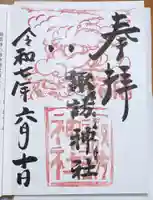 奉拝
諏訪神社
令和七年六月十日